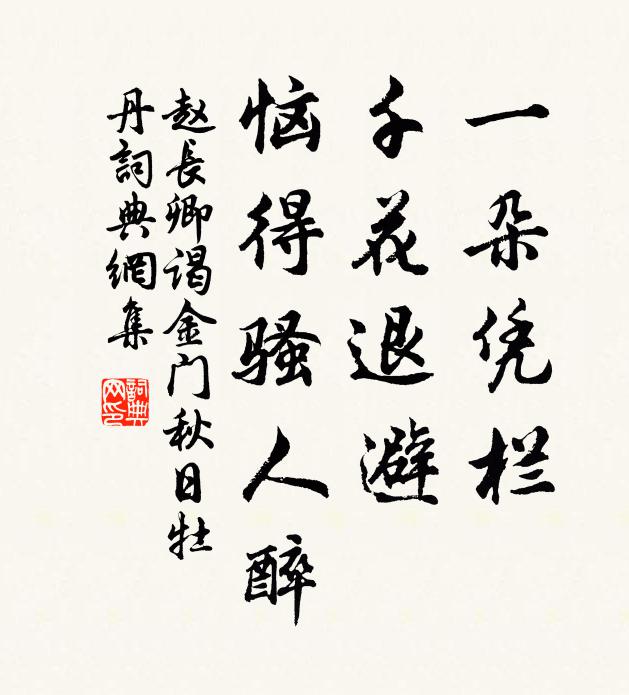 一朵凭栏
千花退避
恼得骚人醉
赵長卿谒金门秋日牡
丹詞典網集
詞典网印